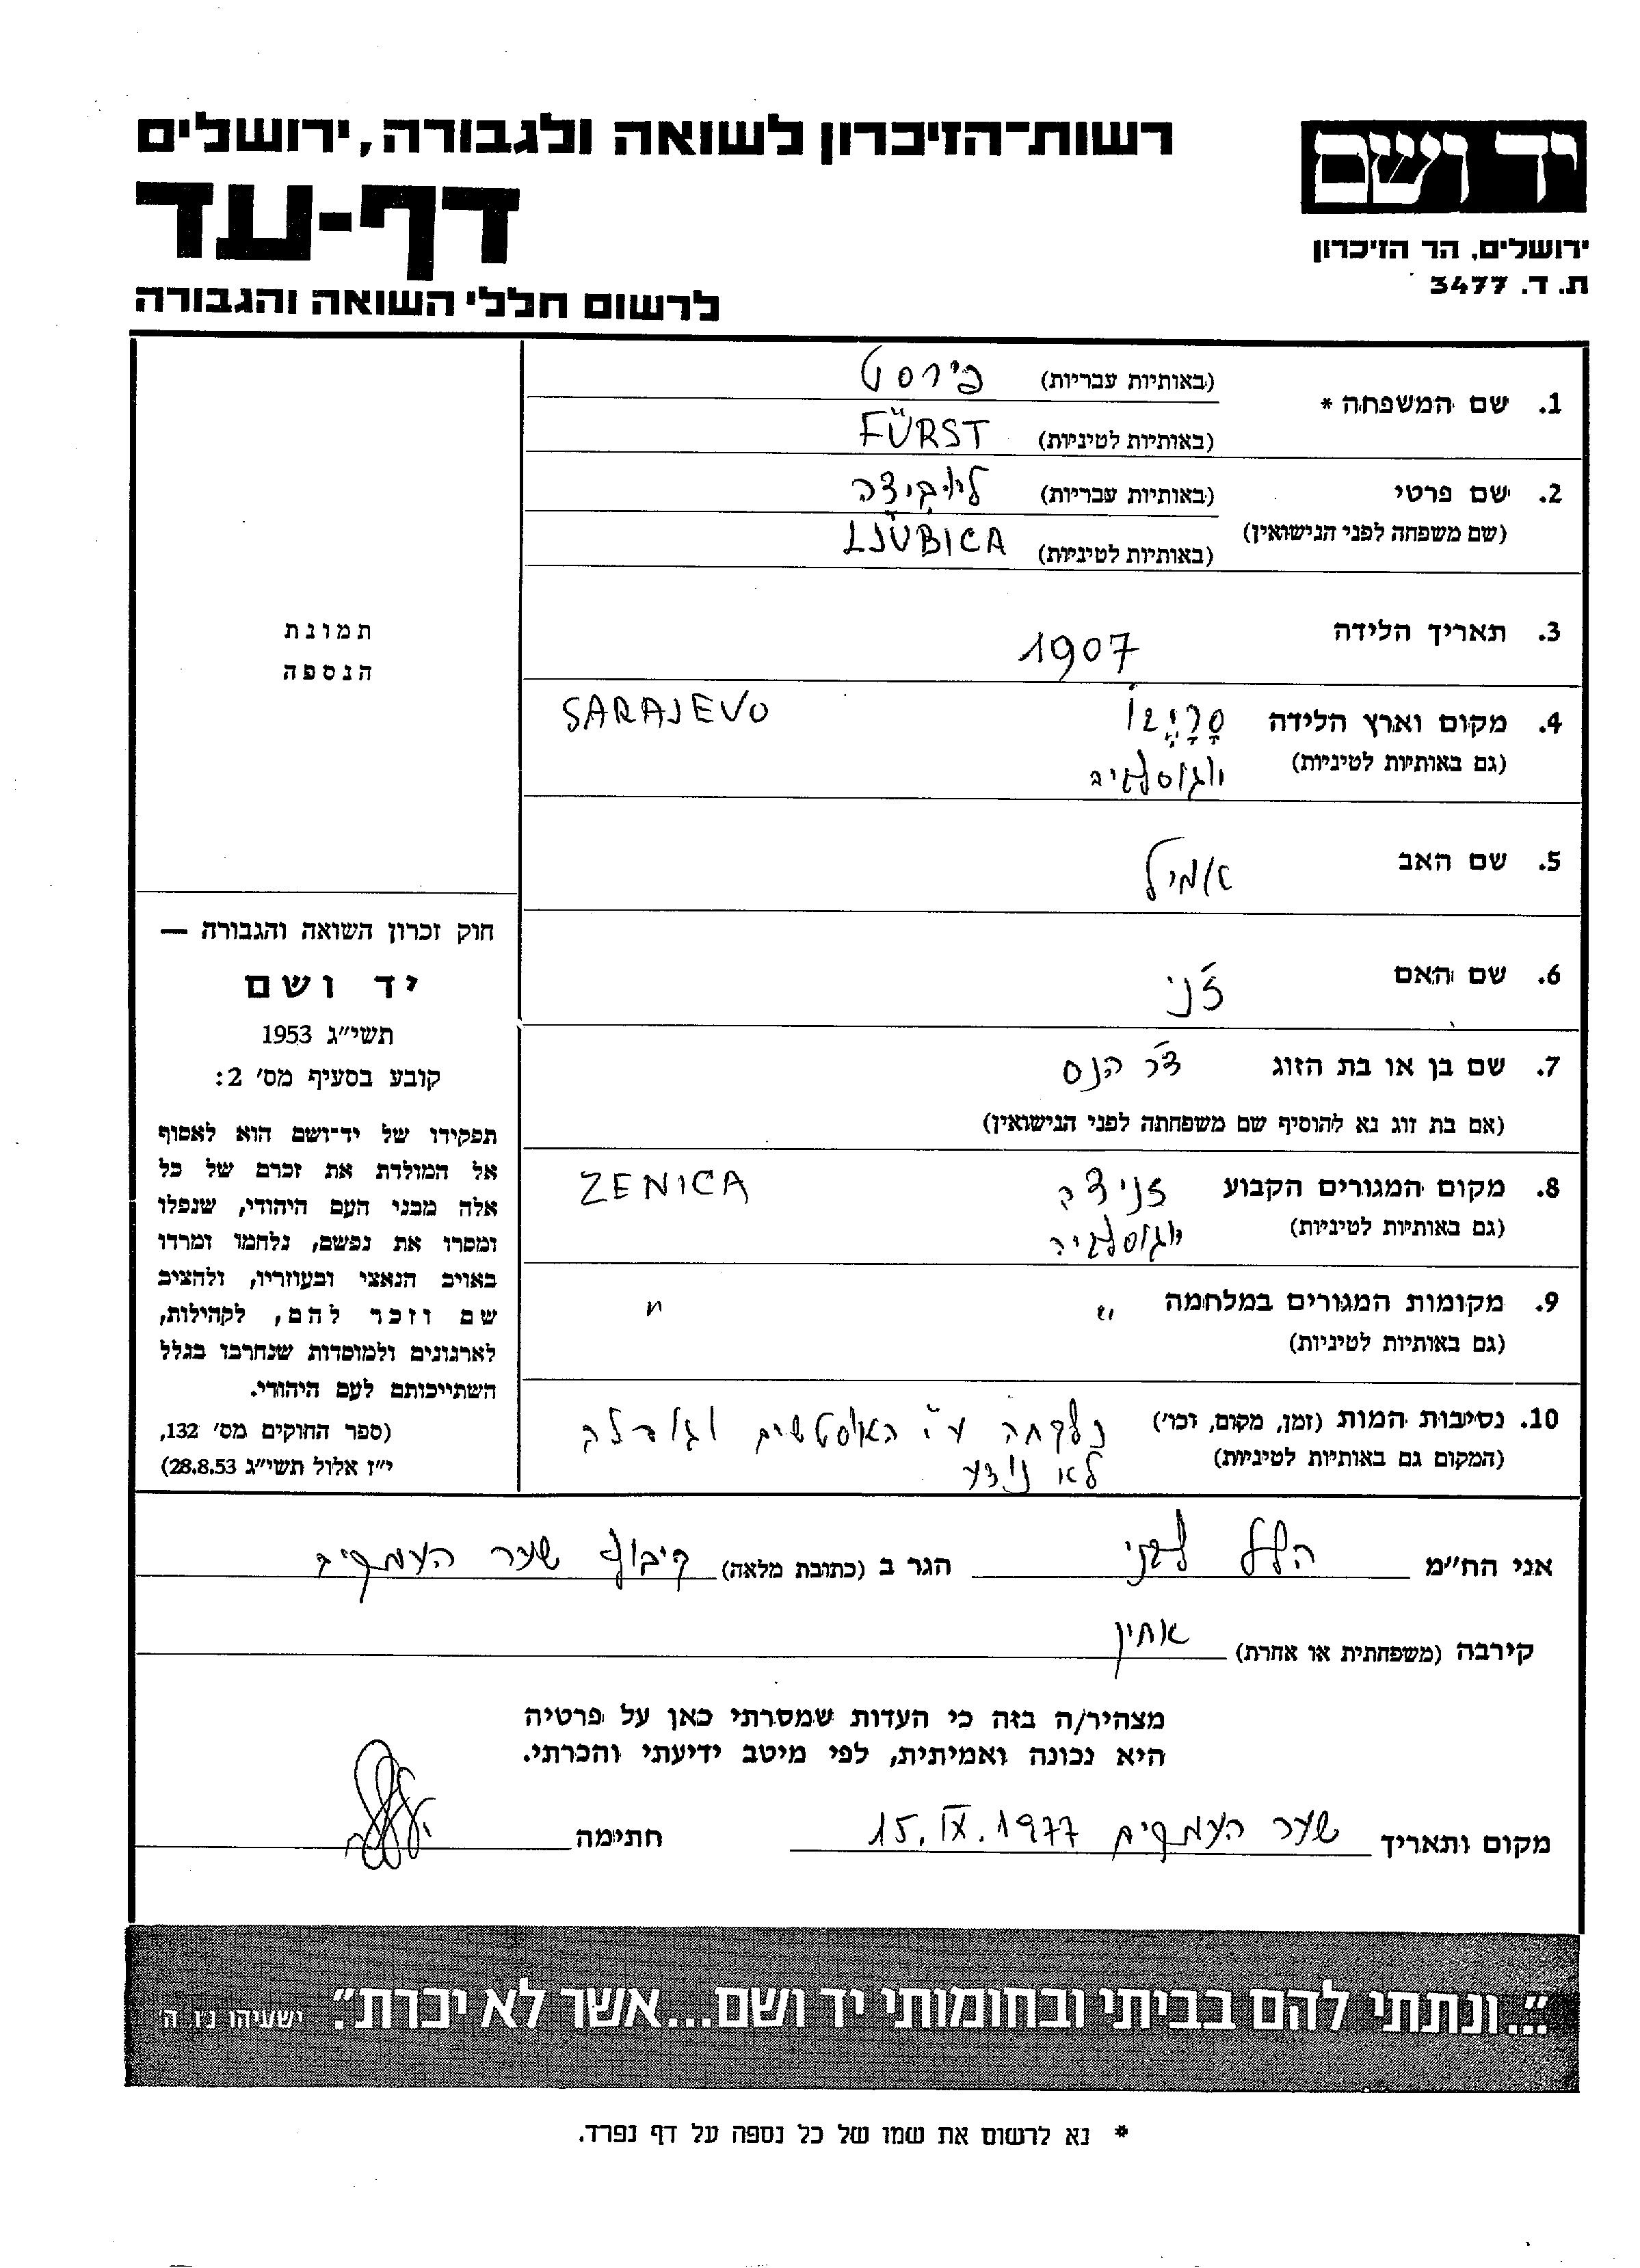 יד ושם
ירושלים, הר הזיכרון
ת. ד. 3477
רשות־הזיכרון לשואה ולגבורה, ירושלים
דף-עד
לרשום חללי השואה והגבורה
1. שם המשפחה *
(באותיות עבריות) פירסט
(באותיות לטיניות) FÜRST
2. שם פרטי
(שם משפחה לפני הנישואין)
(באותיות עבריות) ליוביצה
(באותיות לטיניות) LJUBICA
3. תאריך הלידה 1907
4. מקום וארץ הלידה סָרָיֶבוֹ SARAJEVO
(גם באותיות לטיניות) יוגוסלביה
5. שם האב אמיל
6. שם האם ז'ני
7. שם בן או בת הזוג ד"ר הנס
(אם בת זוג נא להוסיף שם משפחתה לפני הנישואין)
8. מקום המגורים הקבוע זניצה ZENICA
(גם באותיות לטיניות) יוגוסלביה
9. מקומות המגורים במלחמה " "
(גם באותיות לטיניות)
10. נסיבות המות (זמן, מקום, וכו') נלקחה ע"י האוסטשים וגורלה
(המקום גם באותיות לטיניות) לא נודע
תמונת
הנספה
חוק זכרון השואה והגבורה —
יד ושם
תשי״ג 1953
קובע בסעיף מס׳ 2:
תפקידו של יד־ושם הוא לאסוף
אל המולדת את זכרם של כל
אלה מבני העם היהודי, שנפלו
ומסרו את נפשם, נלחמו ומרדו
באויב הנאצי ובעוזריו, ולהציב
שם וזכר להם, לקהילות,
לארגונים ולמוסדות שנחרבו בגלל
השתייכותם לעם היהודי.
(ספר החוקים מס׳ 132,
י״ז אלול תשי״ג 28.8.53)
אני הח״מ הלל לבני הגר ב (כתובת מלאה) קיבוץ שער העמקים
קירבה (משפחתית או אחרת) אחין
מצהיר/ה בזה כי העדות שמסרתי כאן על פרטיה
היא נכונה ואמיתית, לפי מיטב ידיעתי והכרתי.
מקום ותאריך שער העמקים 15.IX.1977 חתימה
"...ונתתי להם בביתי ובחומותי יד ושם...אשר לא יכרת". ישעיהו נ״ו, ה׳
* נא לרשום את שמו של כל נספה על דף נפרד.